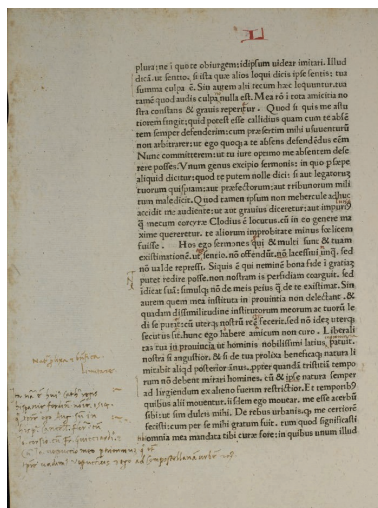 L
plura: ne i quote obiurgem: idipsum uidear imitari. Illud
dicā. ut sentio. si ista quæ alios loqui dicis ipse sentis: tua
summa culpa ē. Sin autem alii tecum hæc loquūtur. tua
tamē quod audis culpa nulla est. Mea rō i tota amicitia no
stra constans & grauis reperitur. Quod si quis me astu
tiorem fingit: quid potest esse callidius quam cum te absē
tem semper defenderim: cum præsertim mihi usu uenturū
non arbitrarer: ut ego quoq; a te absens defendēdus eēm
Nunc committerem: ut tu iure optimo me absentem dese
rere posses. Vnum genus excipio sermonis: in quo psæpe
aliquid dicitur: quod te putem nolle dici: si aut legatoꝝ
tuorum quispiam: aut præfectorum: aut tribunorum mili
tum maledicit. Quod tamen ipsum non mehercule adhuc
accidit me audiente: ut aut grauius diceretur: aut impurꝰ
q̃ mecum corcyræ Clodius ē locutus. cū in eo genere ma
xime quereretur. te aliorum improbitate minus fœlicem
fuisse. Hos ego sermones qui & multi sunt & tuam
existimationē. ut sentio. nō offendūt. nō lacessiui unq̃. sed
nō ualde repressi. Siquis ē qui neminē bona fide i gratiaꝫ
putet redire posse. non nostram is perfidiam coarguit. sed
idicat suā: simulq; nō de meis peius q̃ de te existimat. Sin
autem quem mea instituta in prouintia non delectant. &
quadam dissimilitudine institutorum meorum ac tuorū le
di se putat: cū uterq; nostrū recte fecerit. sed nō idē uterq;
secutus sit. hunc ego habere amicum non curo. Liberali
tas tua in prouincia ut hominis nobilissimi latius patuit.
nostra si angustior. & si de tua prolixa beneficaq; natura li
mitabit aliqd posterior ānus. ppter quandā tristitiā tempo
rum nō debent mirari homines. cū & ipse natura semper
ad largiendum ex alieno fuerim restrictior. Et temporibꝰ
quibus alii mouentur. iisdem ego mouear. me esse acerbū
sibi: ut sim dulcis mihi. De rebus urbanis. q; me certiorē
fecisti: cum per se mihi gratum fuit. tum quod significasti
omnia mea mandata tibi curæ fore: in quibus unum illud